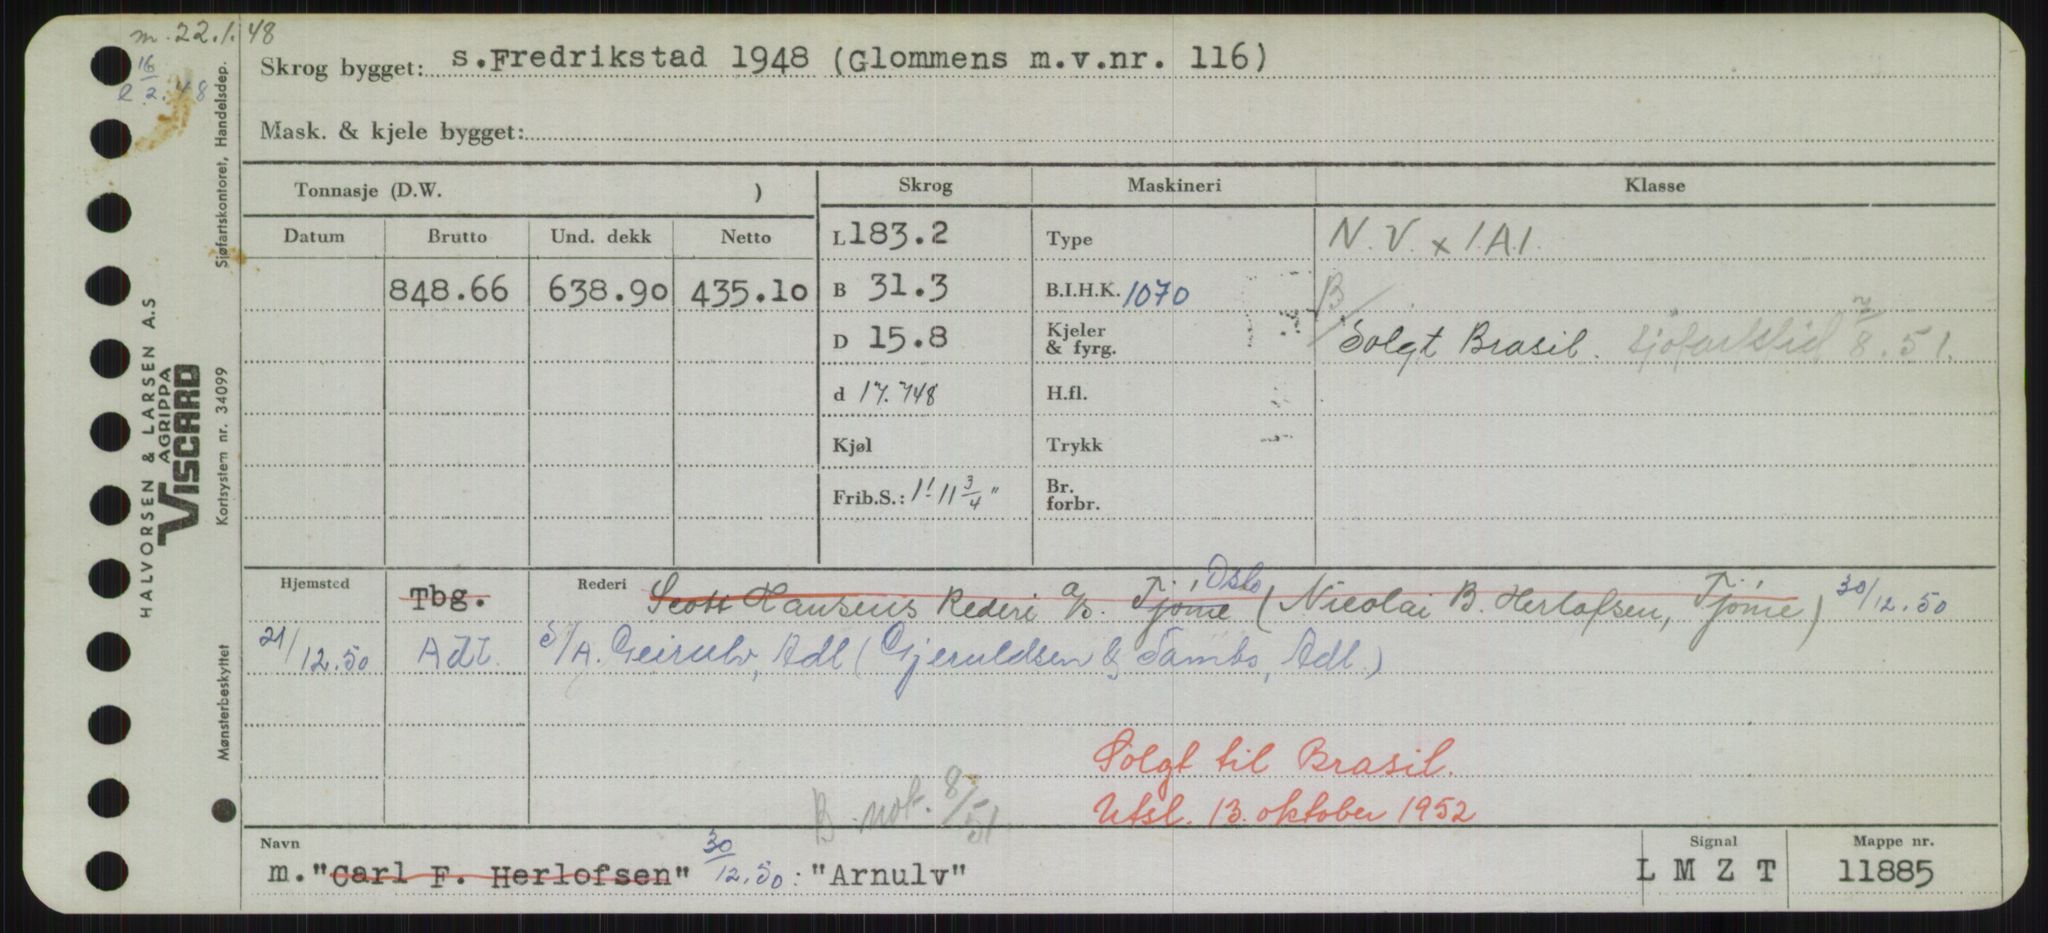 m. 22.1.48
16
l 2.48
Skrog bygget: s.Fredrikstad 1948 (Glommens m.v.nr. 116)
Mask. & kjele bygget:
Tonnasje (D.W. )
Skrog
Maskineri
Klasse
Datum
Brutto
Und. dekk
Netto
L 183.2
Type
N.V. x 1.A.1.
848.66
638.90
435.10
B 31.3
B.I.H.K. 1070
B/
D 15.8
Kjeler
& fyrg.
Solgt Brasil. Sjøfartstid 7/8.51.
d 17.748
H.fl.
Kjøl
Trykk
Frib.S.: 1' 11 3/4"
Br.
forbr.
Hjemsted
Tbg.
Rederi
Scott Hansens Rederi A/S. Tjöme Oslo (Nicolai B. Herlofsen, Tjöme) 30/12.50
21/12.50
Adl.
S/A. Geirulv, Adl (Gjeruldsen & Sambo, Adl.)
Solgt til Brasil.
B not. 8/51
Utsl. 13. oktober 1952
Navn
m. "Carl F. Herlofsen" 30/12.50: "Arnulv"
Signal
L M Z T
Mappe nr.
11885
HALVORSEN & LARSEN A.S
AGRIPPA
VISCARD
Sjøfartskontoret, Handelsdep.
Kortsystem nr. 34099
Mønsterbeskyttet